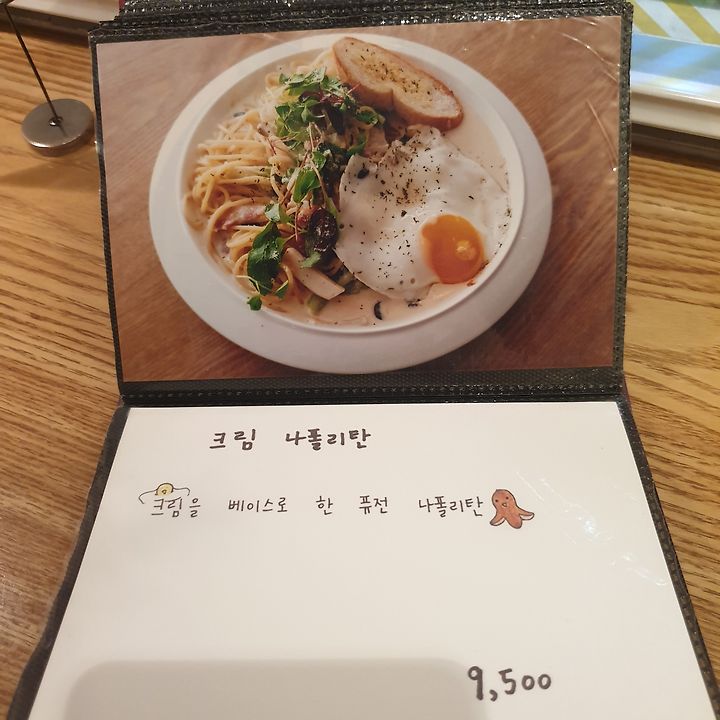 크림 나폴리탄
크림을 베이스로 한 퓨전 나폴리탄
9,500